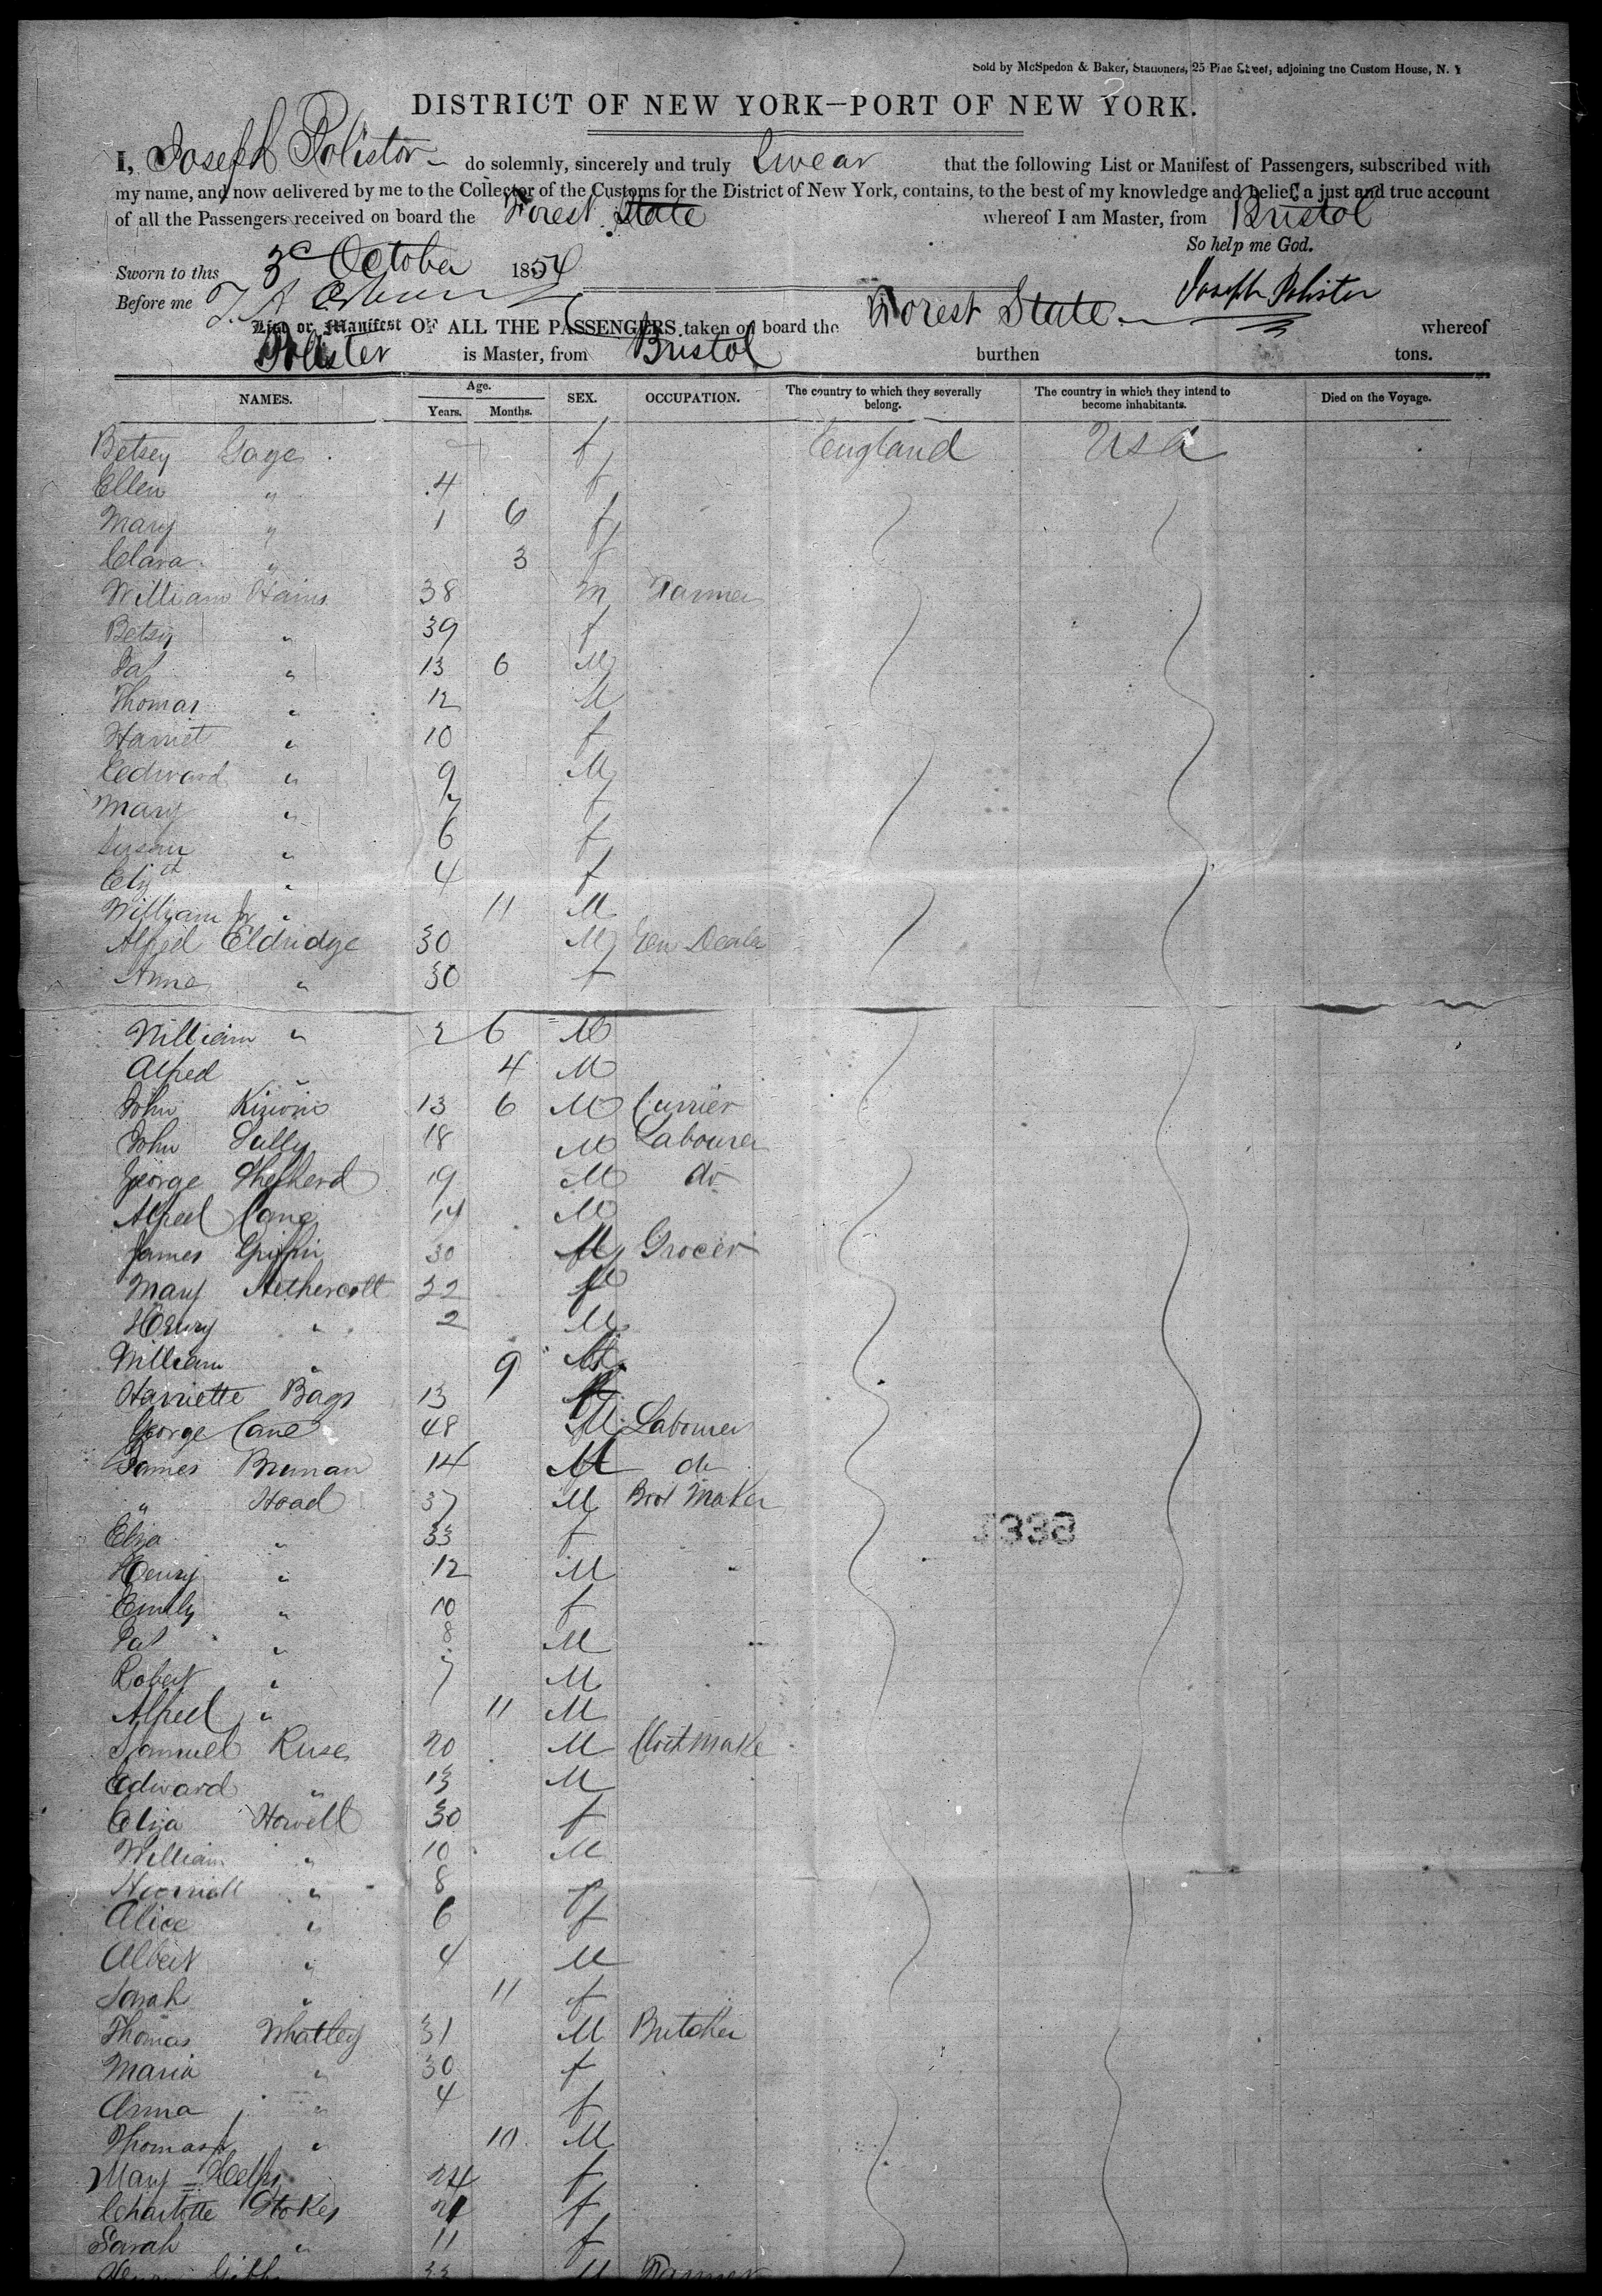 Sold by McSpedon & Baker, Stationers, 25 Pine Street, adjoining the Custom House, N. Y
DISTRICT OF NEW YORK—PORT OF NEW YORK.
I, Joseph Polister do solemnly, sincerely and truly Swear that the following List or Manifest of Passengers, subscribed with
my name, and now delivered by me to the Collector of the Customs for the District of New York, contains, to the best of my knowledge and belief, a just and true account
of all the Passengers received on board the Forest State whereof I am Master, from Bristol
So help me God.
Sworn to this 3d October 1854
Joseph Polister
Before me
List or Manifest OF ALL THE PASSENGERS taken on board the Forest State whereof
Pollister is Master, from Bristol burthen tons.
NAMES. Age. Years. Months. SEX. OCCUPATION. The country to which they severally belong. The country in which they intend to become inhabitants. Died on the Voyage.
Betsey Gage f England USA
Ellen " 4 f
Mary " 1 6 f
Clara " 3 f
William Hains 38 M Farmer
Betsy " 39 f
" 13 6 M
Thomas " 12 M
Harriet " 10 f
Edward " 9 M
Mary " 7 f
Susan " 6 f
Elizth " 4 f
William Jr " 11 M
Alfred Eldridge 30 M Dealer
Anne " 30 f
William " 2 6 M
Alfred " 4 M
John 13 6 M Currier
John 18 M Labourer
George Shepherd 19 M do
Alfred Cane 14 M
James Griffin 30 M Grocer
Mary Nethercott 22 f
Henry " 2 M
William " 9 M
Harriette Bags 13 f
George Cane 48 M Labourer
James 14 M do
" Hoad 37 M Boot Maker
Eliza " 33 f
Henry " 12 M
Emily " 10 f
" 8 M
Robert " 7 M
Alfred " 11 M
Samuel Ruse 20 M
Edward " 13 M
Eliza Howell 30 f
William " 10 M
" 8 f
Alice " 6 f
Albert " 4 M
Sarah " 11 f
Thomas Whatley 31 M Butcher
Maria " 30 f
Anna " 4 f
Thomas Jr " 10 M
Mary 24 f
Charlotte Stokes 21 f
Sarah " 11 f
33 M Farmer